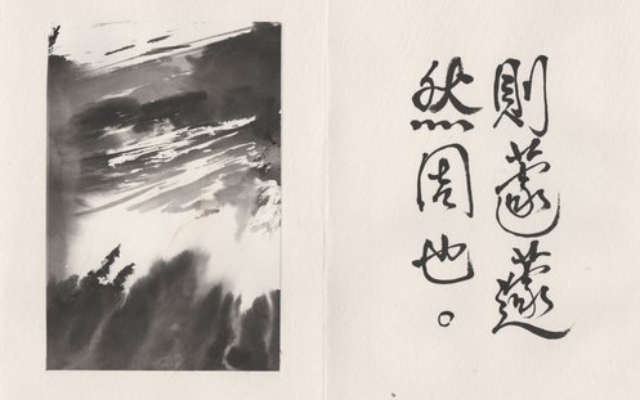 則蘧蘧
然周也。